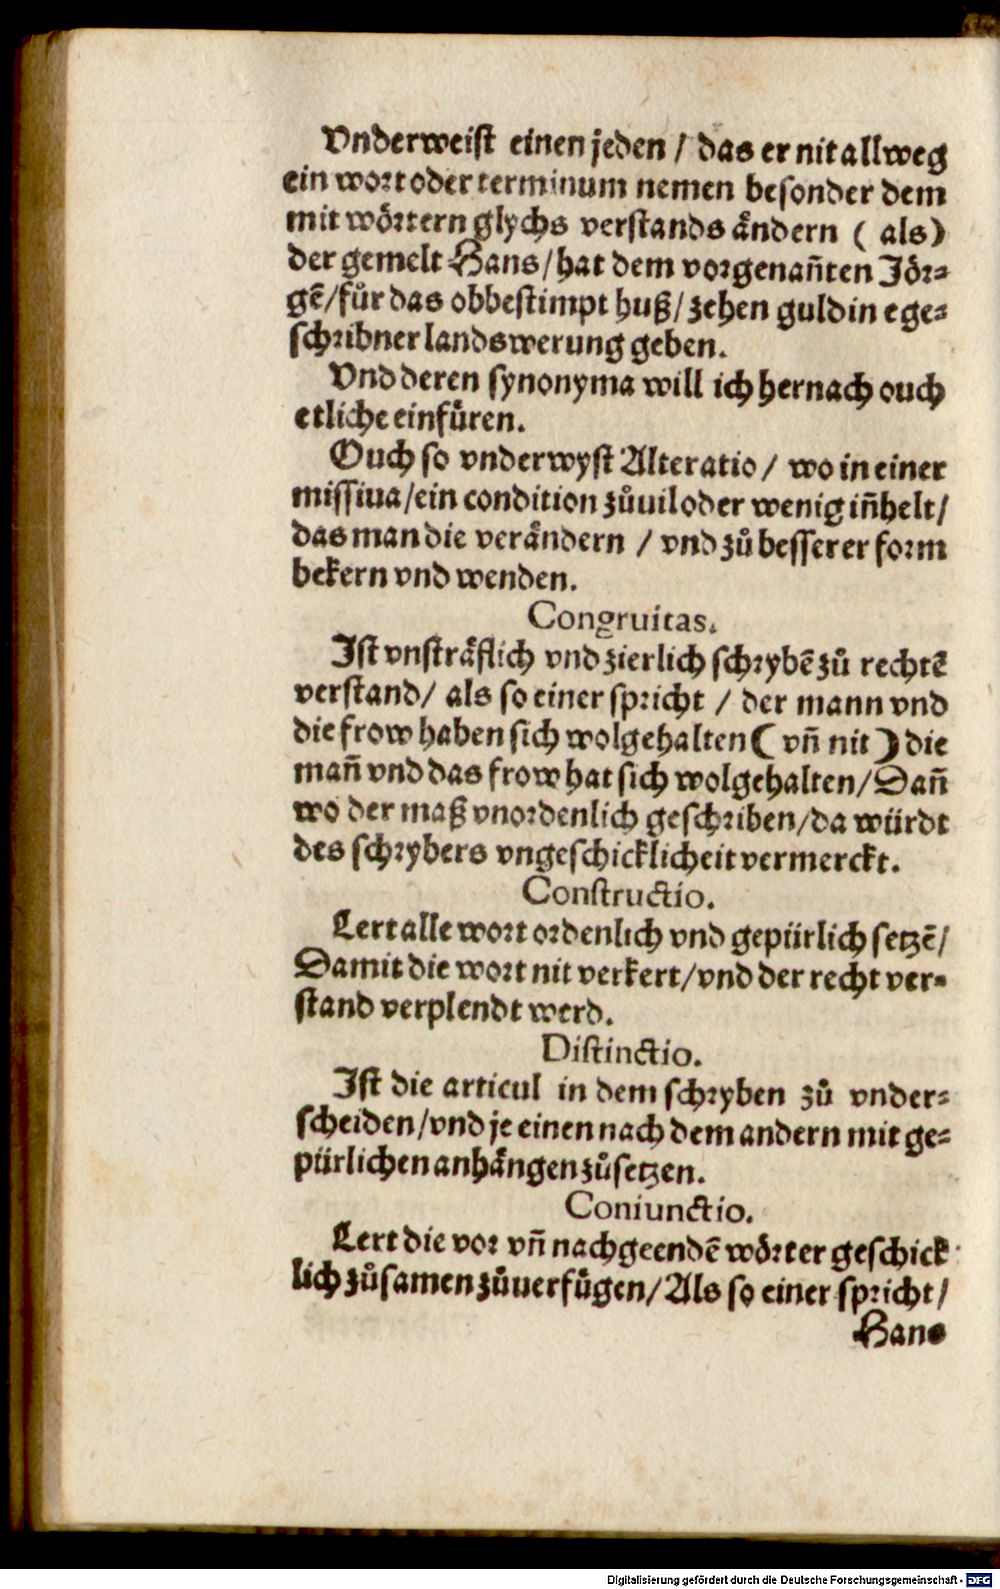 Vnderweist einen jeden / das er nit allweg
ein wort oder terminum nemen besonder dem
mit woͤrtern glychs verstands aͤndern ( als )
der gemelt Hans / hat dem vorgenañten Joͤr⸗
gẽ / fuͤr das obbestimpt huß / zehen guldin ege⸗
schribner landswerung geben.
Vnd deren synonyma will ich hernach ouch
etliche einfuͤren.
Ouch so vnderwyst Alteratio / wo in einer
missiua / ein condition zůuil oder wenig iñhelt /
das man die veraͤndern / vnd zů besserer form
bekern vnd wenden.
Congruitas.
Ist vnstraͤflich vnd zierlich schrybẽ zů rechtẽ
verstand / als so einer spricht / der mann vnd
die frow haben sich wolgehalten ( vñ nit ) die
mañ vnd das frow hat sich wolgehalten / Dañ
wo der maß vnordenlich geschriben / da würdt
des schrybers vngeschicklicheit vermerckt.
Constructio.
Lert alle wort ordenlich vnd gepürlich setzẽ /
Damit die wort nit verkert / vnd der recht ver⸗
stand verplendt werd.
Distinctio.
Ist die articul in dem schryben zů vnder⸗
scheiden / vnd je einen nach dem andern mit ge⸗
pürlichen anhaͤngen zůsetzen.
Coniunctio.
Lert die vor vñ nachgeendẽ woͤrter geschick
lich zůsamen zůuerfuͤgen / Als so einer spricht /
Hans
Digitalisierung gefördert durch die Deutsche Forschungsgemeinschaft - DFG